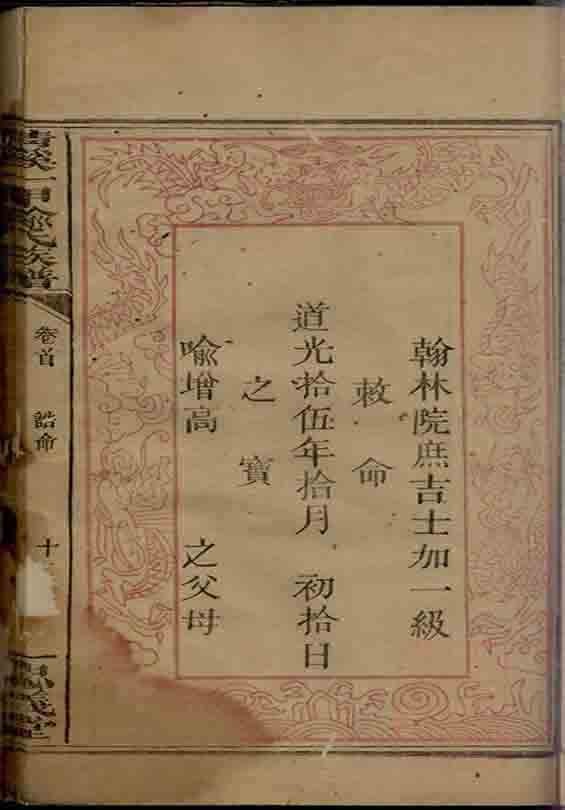 翰林院庶吉士加一級
敕命
道光拾伍年拾月 初拾日
之寶
喻增高 之父母
氏族譜
卷首 誥命
十
堂